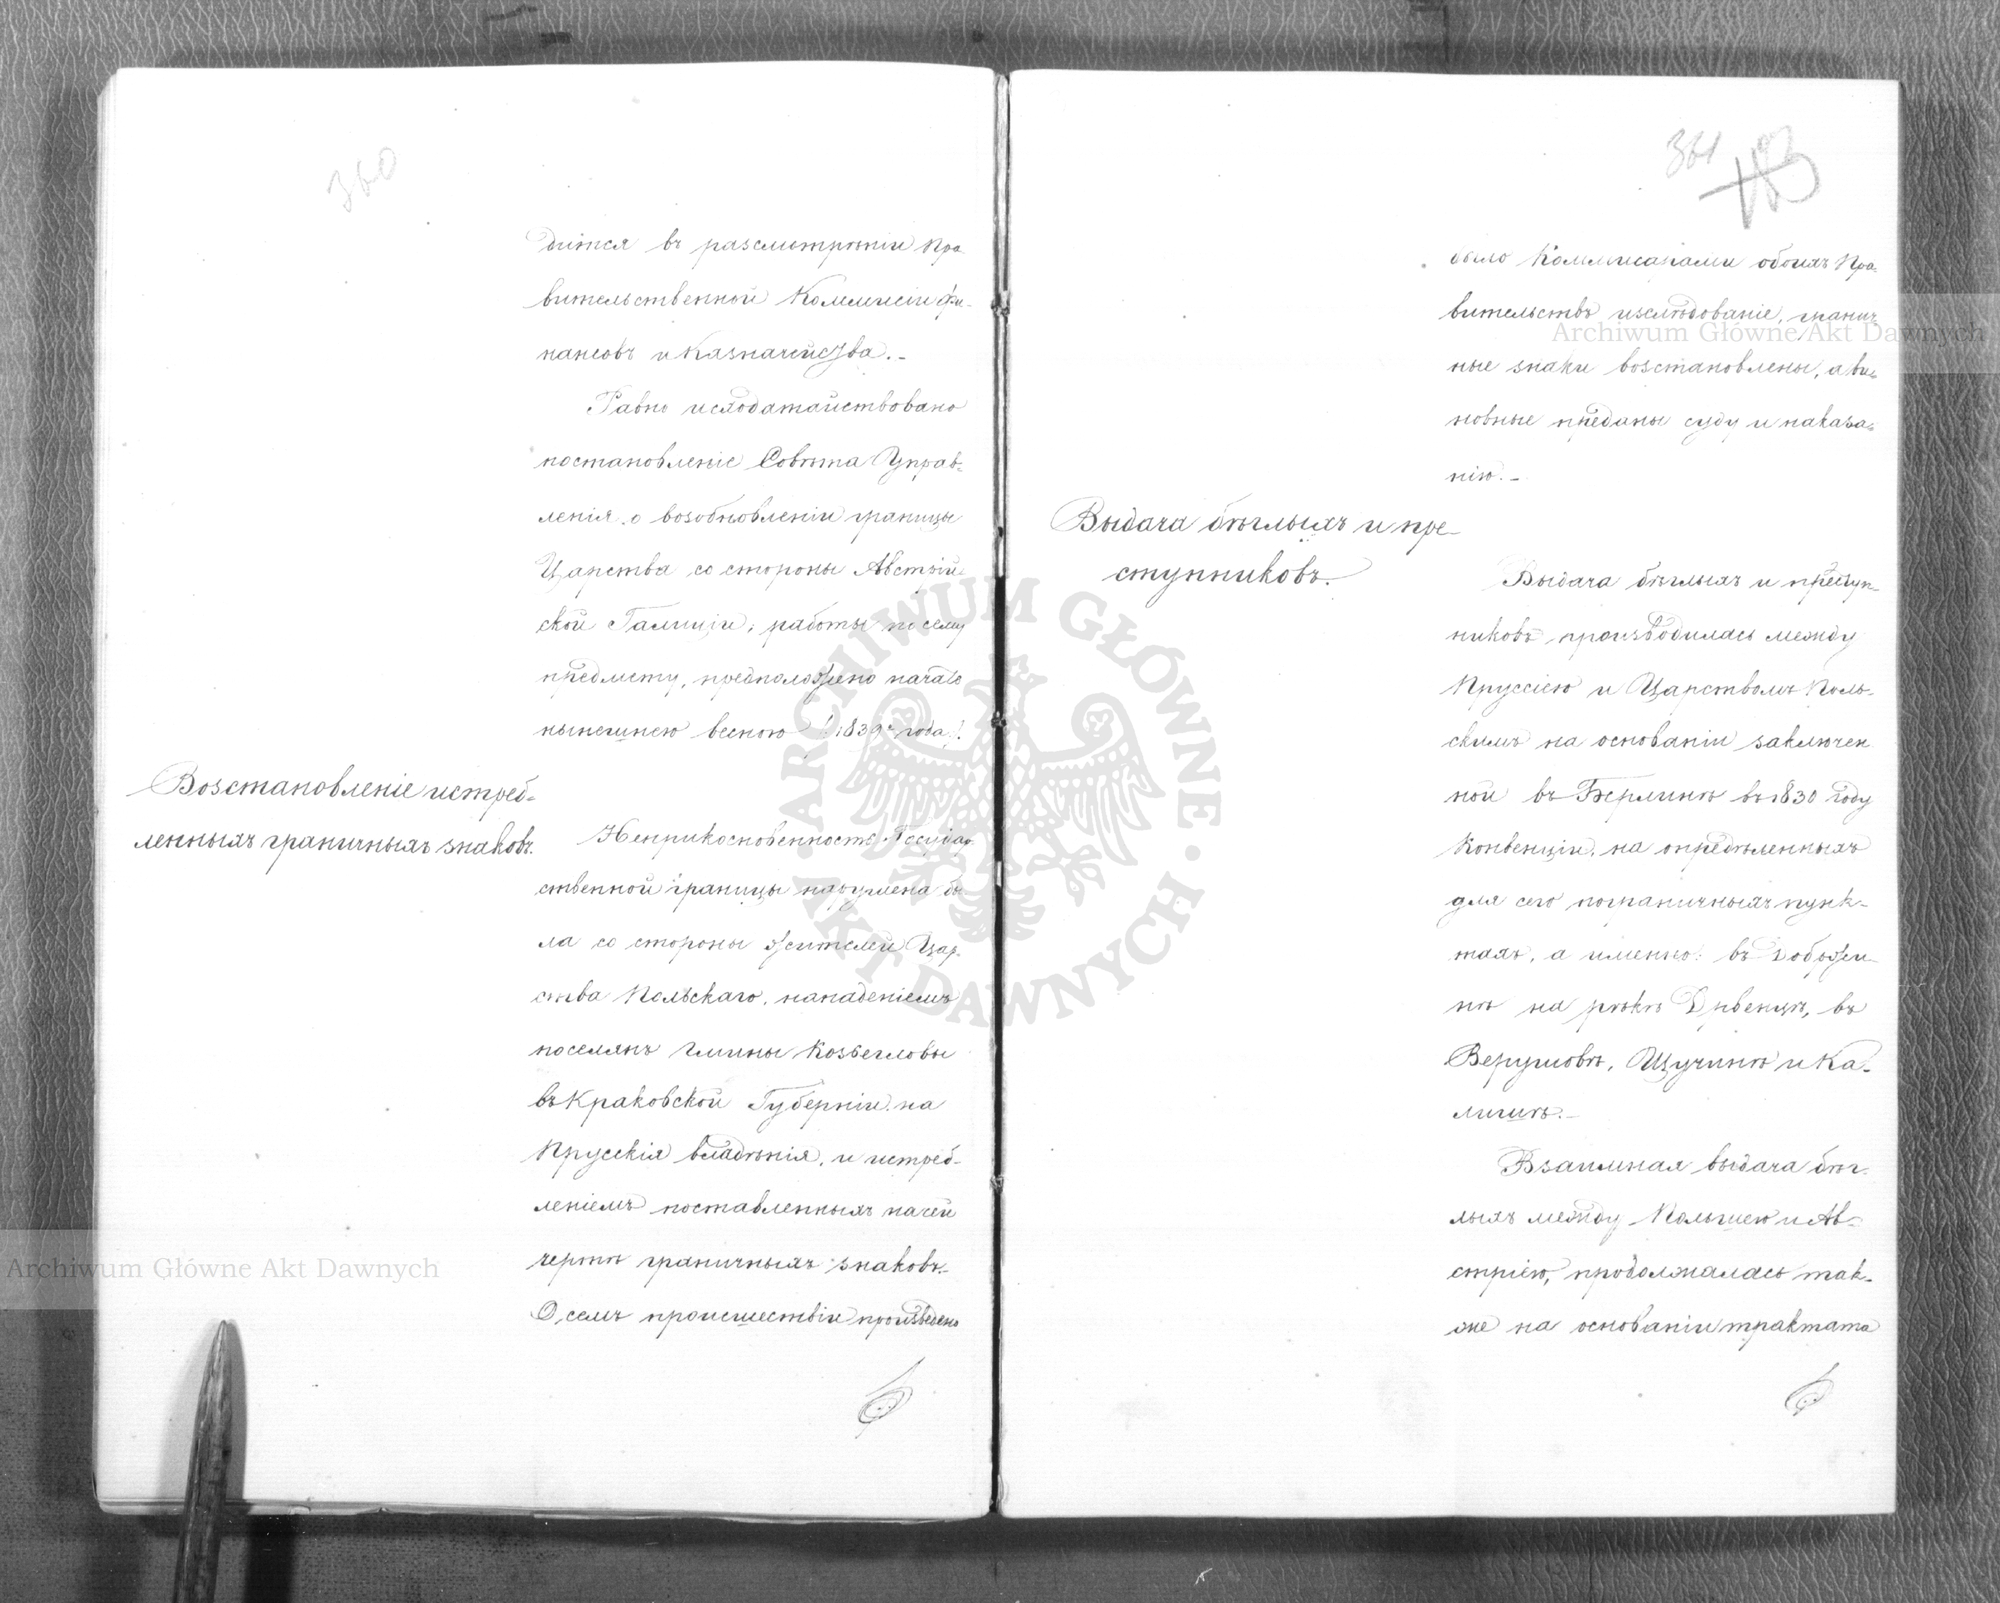 360
дится въ разсмотрѣніи Пра-
вительственной Коммисіи Фи-
нансовъ и Казначейства.-
Равно исходатайствовано
постановленіе Совѣта Управ-
ленія о возобновленіи границы
Царства со стороны Австрій-
ской Галиціи; работы по сему
предмету, предположено начать
нынешнею весною (1839го года).
Возстановленіе истреб-
ленныхъ граничныхъ знаковъ.
Неприкосновенность Государ-
ственной границы нарушена бы-
ла со стороны жителей Цар-
ства Польскаго, нападеніемъ
поселянъ гмины Козегловы
въ Краковской Губерніи на
Прусскія владѣнія, и истреб-
леніемъ поставленныхъ на сей
чертѣ граничныхъ знаковъ.-
О семъ происшествіи произведено
361
183
было Коммисарами обоихъ Пра-
вительствъ изслѣдованіе, гранич-
ные знаки возстановлены, а ви-
новные преданы суду и наказа-
нію.-
Выдача бѣглыхъ и пре-
ступниковъ.
Выдача бѣглыхъ и преступ-
никовъ производилась между
Пруссіею и Царствомъ Поль-
скимъ на основаніи заключен
ной въ Берлинѣ въ 1830 году
Конвенціи, на опредѣленныхъ
для сего пограничныхъ пунк-
тахъ, а именно: въ Добржи-
нѣ на рѣкѣ Дрвенцѣ, въ
Верушовѣ, Щучинѣ и Ка-
лишѣ.-
Взаимная выдача бѣг-
лыхъ между Польшею и Ав-
стріею, продолжалась так-
же на основаніи трактата
Archiwum Główne Akt Dawnych
Archiwum Główne Akt Dawnych
ARCHIWUM GŁÓWNE · AKT DAWNYCH ·